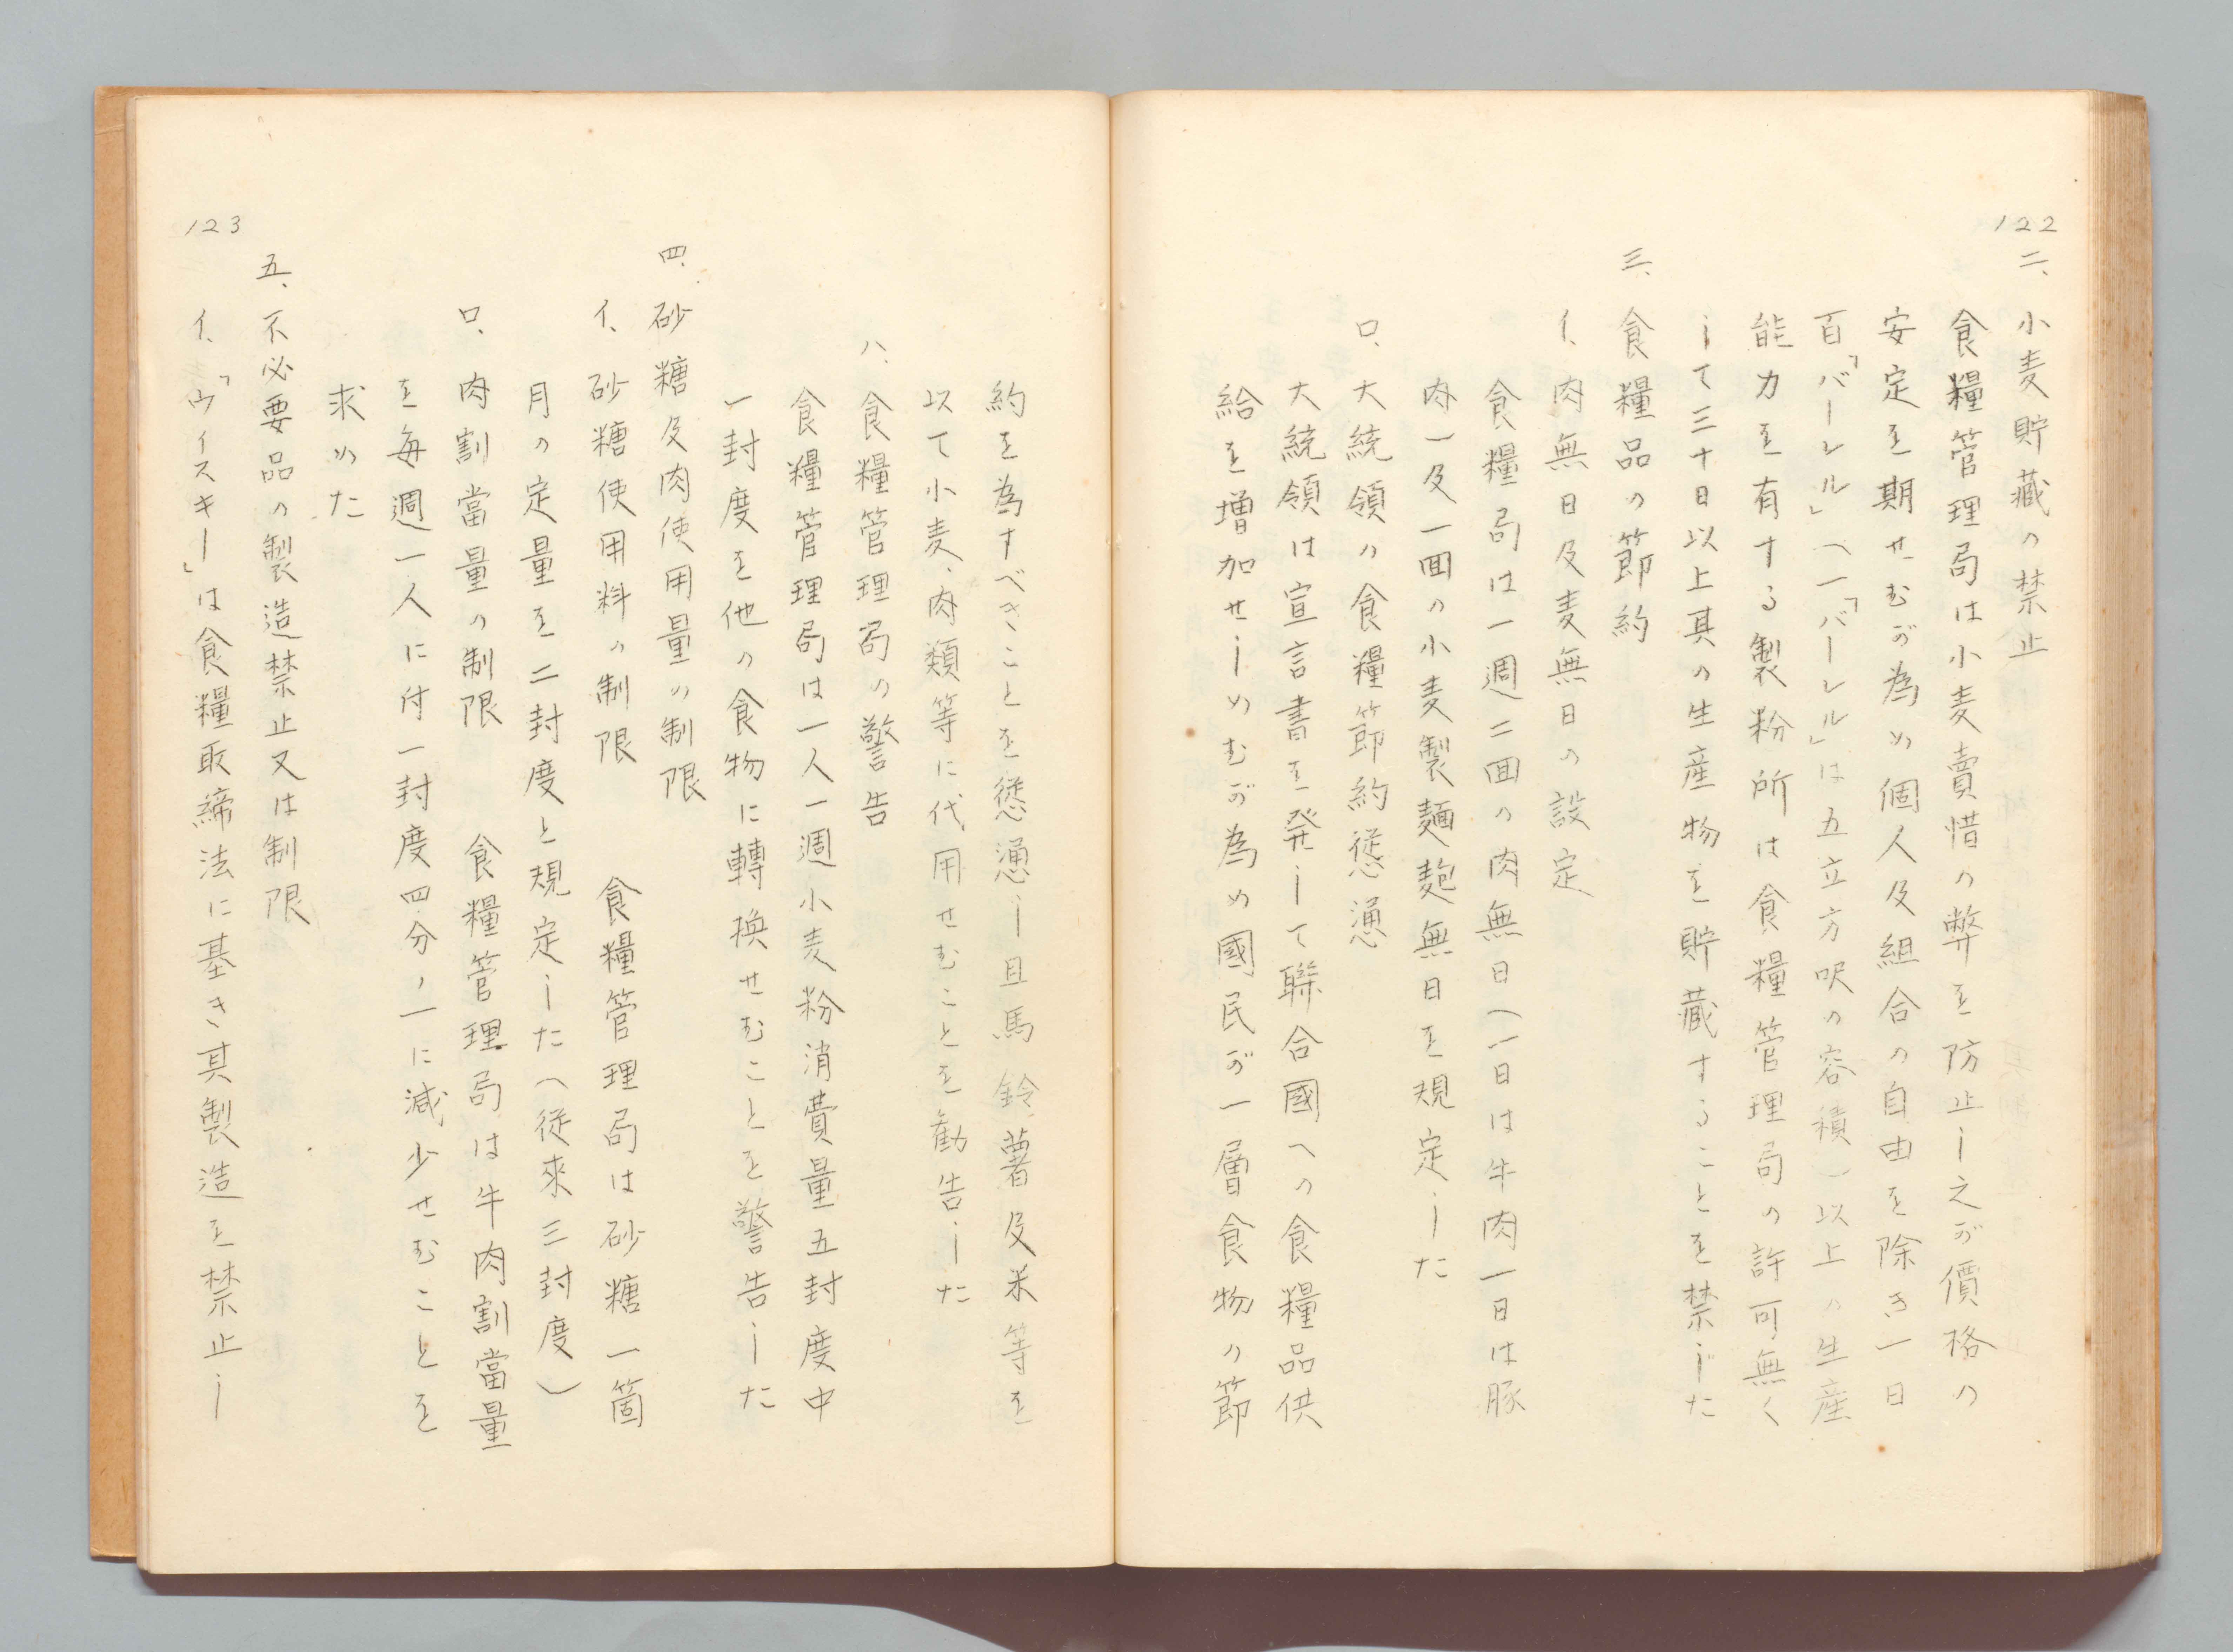 122
二、小麦貯藏の禁止
食糧管理局は小麦賣惜の弊を防止し之が價格の
安定を期せむが為め個人及組合の自由を除き一日
百「バーレル」(一「バーレル」は五立方呎の容積)以上の生産
能力を有する製粉所は食糧管理局の許可無く
して三十日以上其の生産物を貯藏することを禁じた
三、食糧品の節約
イ、肉無日及麦無日の設定
食糧局は一週二回の肉無日(一日は牛肉一日は豚
肉)及一回の小麦製麺麭無日を規定した
ロ、大統領の食糧節約慫慂
大統領は宣言書を発して聯合國への食糧品供
給を増加せしめむが為め國民が一層食物の節
約を為すべきことを慫慂し且馬鈴薯及米等を
以て小麦、肉類等に代用せむことを勧告した
ハ、食糧管理局の警告
食糧管理局は一人一週小麦粉消費量五封度中
一封度を他の食物に轉換せむことを警告した
四、砂糖及肉使用量の制限
イ、砂糖使用料の制限 食糧管理局は砂糖一箇
月の定量を二封度と規定した(従來三封度)
ロ、肉割當量の制限 食糧管理局は牛肉割當量
を毎週一人に付一封度四分ノ一に減少せむことを
求めた
五、不必要品の製造禁止又は制限
イ、「ウィスキー」は食糧取締法に基き其製造を禁止し
123